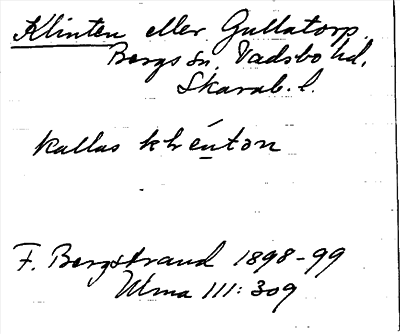 Klinten eller Gullatorp.
Bergs sn. Vadsbo hd.
Skarab. l.
kallas
F. Bergstrand 1898-99
Ulma 111: 309